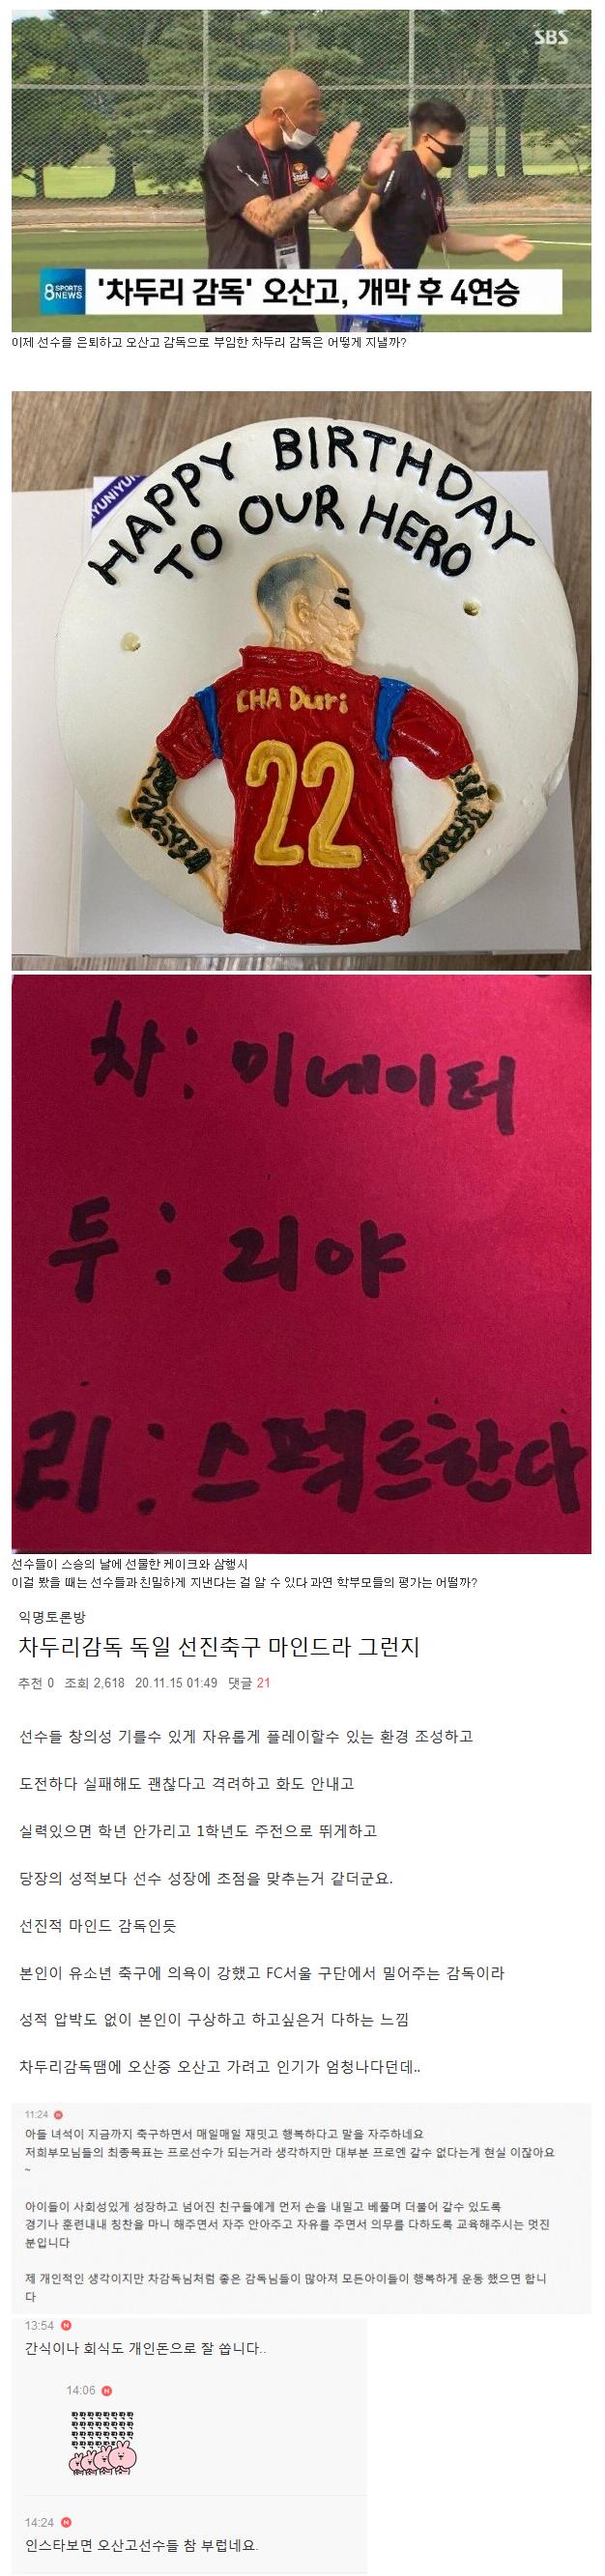 SBS
8 SPORTS NEWS
'차두리 감독' 오산고, 개막 후 4연승
이제 선수를 은퇴하고 오산고 감독으로 부임한 차두리 감독은 어떻게 지낼까?
HAPPY BIRTHDAY
TO OUR HERO
CHA Duri
22
차 : 미네이터
두 : 리야
리 : 스펙트한다
선수들이 스승의 날에 선물한 케이크와 삼행시
이걸 봤을 때는 선수들과 친밀하게 지낸다는 걸 알 수 있다 과연 학부모들의 평가는 어떨까?
익명토론방
차두리감독 독일 선진축구 마인드라 그런지
추천 0 조회 2,618 20.11.15 01:49 댓글 21
선수들 창의성 기를수 있게 자유롭게 플레이할수 있는 환경 조성하고
도전하다 실패해도 괜찮다고 격려하고 화도 안내고
실력있으면 학년 안가리고 1학년도 주전으로 뛰게하고
당장의 성적보다 선수 성장에 초점을 맞추는거 같더군요.
선진적 마인드 감독인듯
본인이 유소년 축구에 의욕이 강했고 FC서울 구단에서 밀어주는 감독이라
성적 압박도 없이 본인이 구상하고 하고싶은거 다하는 느낌
차두리감독땜에 오산중 오산고 가려고 인기가 엄청나다던데..
11:24 N
아들 녀석이 지금까지 축구하면서 매일매일 재밋고 행복하다고 말을 자주하네요
저희부모님들의 최종목표는 프로선수가 되는거라 생각하지만 대부분 프로엔 갈수 없다는게 현실 이잖아요
~
아이들이 사회성있게 성장하고 넘어진 친구들에게 먼저 손을 내밀고 베풀며 더불어 갈수 있도록
경기나 훈련내내 칭찬을 마니 해주면서 자주 안아주고 자유를 주면서 의무를 다하도록 교육해주시는 멋진
분입니다
제 개인적인 생각이지만 차감독님처럼 좋은 감독님들이 많아져 모든아이들이 행복하게 운동 했으면 합니
다
13:54 N
간식이나 회식도 개인돈으로 잘 씁니다..
14:06 N
14:24 N
인스타보면 오산고선수들 참 부럽네요.